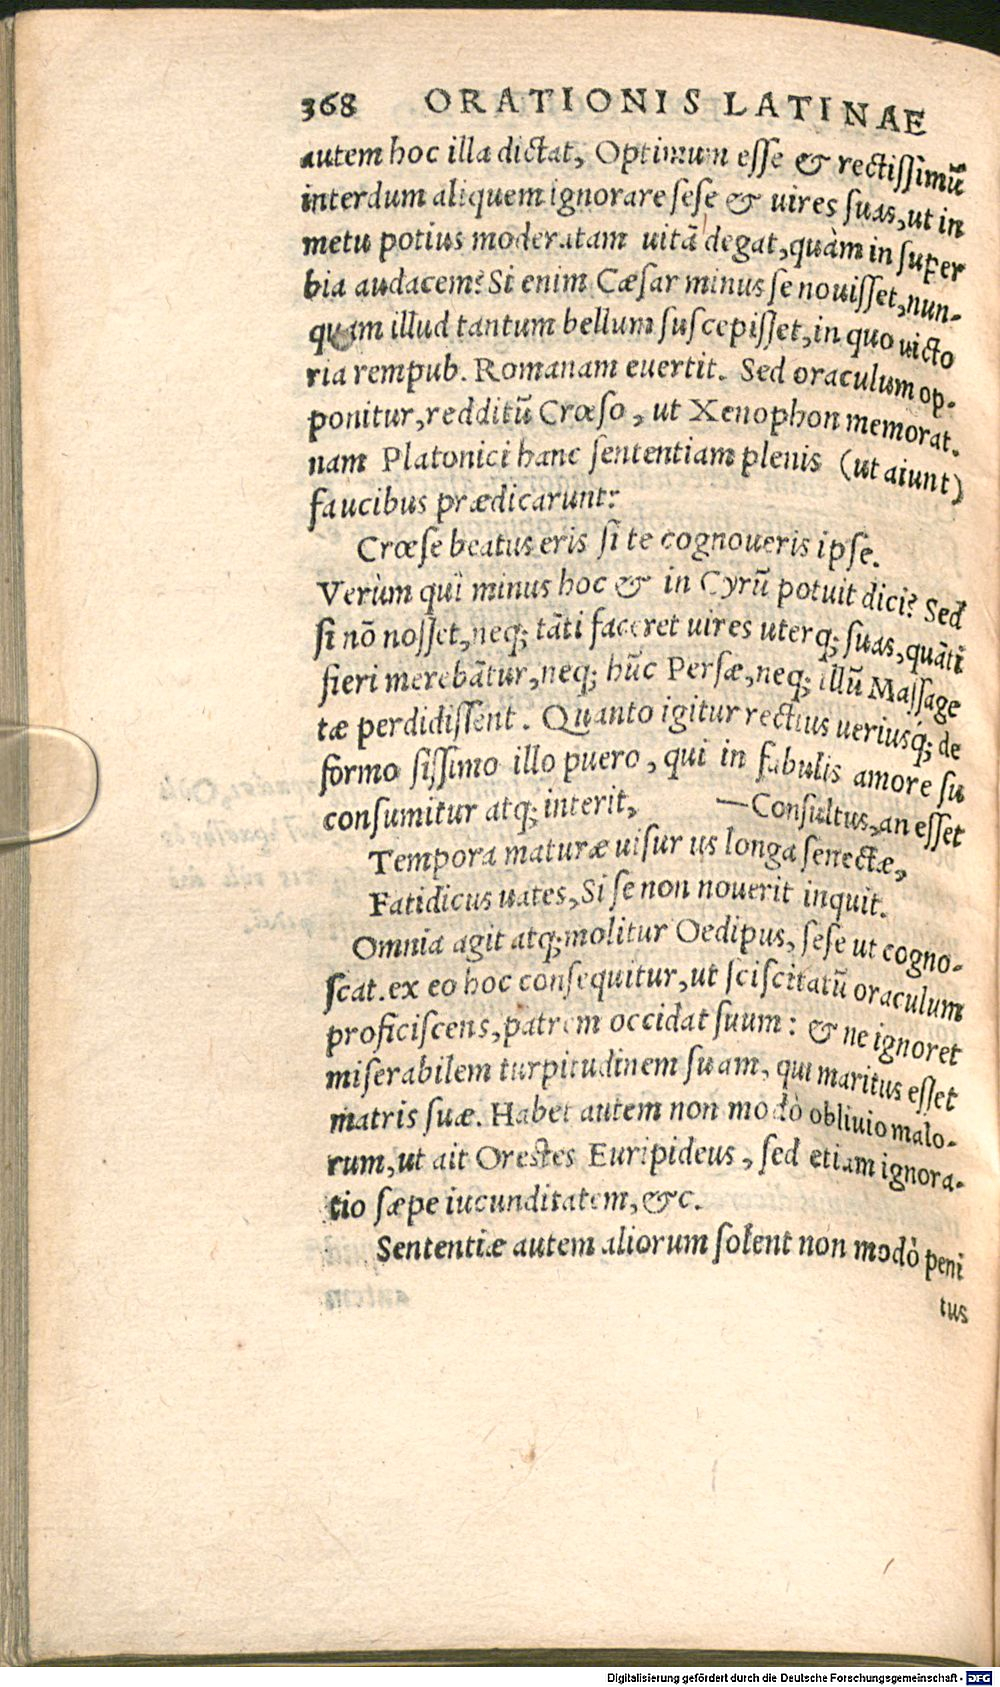 368 ORATIONIS LATINAE
autem hoc illa dictat, Optimum eſſe & rectiſſimũ
interdum aliquem ignorare ſeſe & uires ſuas, ut in
metu potius moderatam uitã degat, quàm in ſuper
bia audacem? Si enim Cæſar minus ſe nouiſſet, nun-
quam illud tantum bellum ſuſcepiſſet, in quo uicto
ria rempub. Romanam euertit. Sed oraculum op-
ponitur, redditũ Crœſo, ut Xenophon memorat.
nam Platonici hanc ſententiam plenis (ut aiunt)
faucibus prædicarunt:
Crœſe beatus eris ſi te cognoueris ipſe.
Verùm quî minus hoc & in Cyrũ potuit dici? Sed
ſi nõ noſſet, neq; tãti faceret uires uterq; ſuas, quãti
fieri merebãtur, neq; hũc Perſæ, neq; illũ Maſſage
tæ perdidiſſent. Quanto igitur rectius ueriusq́; de
formo ſiſſimo illo puero, qui in fabulis amore ſu
conſumitur atq; interit, —Conſultus, an eſſet
Tempora maturæ uiſur us longa ſenectæ,
Fatidicus uates, Si ſe non nouerit inquit.
Omnia agit atq; molitur Oedipus, ſeſe ut cogno-
ſcat. ex eo hoc conſequitur, ut ſciſcitatũ oraculum
proficiſcens, patrem occidat ſuum: & ne ignoret
miſerabilem turpitudinem ſuam, qui maritus eſſet
matris ſuæ. Habet autem non modò obliuio malo-
rum, ut ait Oreſtes Euripideus, ſed etiam ignora-
tio ſæpe iucunditatem, &c.
Sententiæ autem aliorum ſolent non modò peni
tus
Digitalisierung gefördert durch die Deutsche Forschungsgemeinschaft - DFG